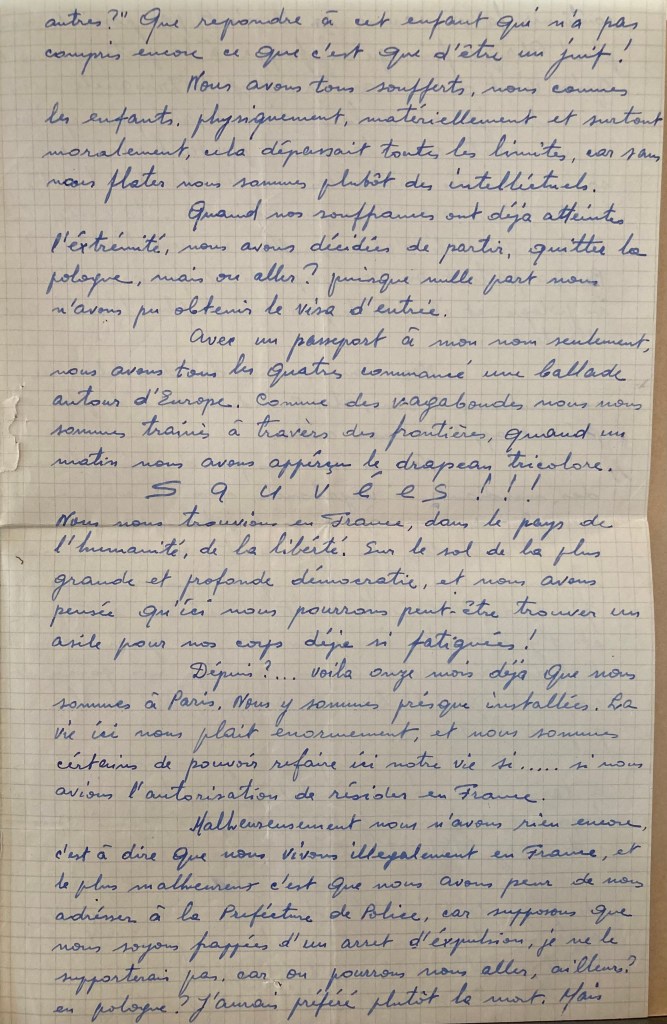 autres?" Que repondre à cet enfant qui n'a pas
compris encore ce que c'est que d'être un juif!
Nous avons tous soufferts, nous comme
les enfants. physiquement, matériellement et surtout
moralement, cela dépassait toutes les limites, car sans
nous flater nous sommes plutôt des intelléctuels.
Quand nos souffrances ont déja atteintes
l'éxtrémité, nous avons décidées de partir, quitter la
pologne, mais ou aller? puisque nulle part nous
n'avons pu obtenir le visa d'entrée.
Avec un passeport à mon nom seulement,
nous avons tous les quatres commancé une ballade
autour d'Europe. Comme des vagabondes nous nous
sommes trainés à travèrs des frontières, quand un
matin nous avons appérçu le drapeau tricolore.
S a u v é e s ! ! !
Nous nous trouvions en France, dans le pays de
l'humanité, de la libérté. Sur le sol de la plus
grande et profonde démocratie, et nous avons
pensée qu'ici nous pourrons peut-être trouver un
asile pour nos corps déje si fatiguées!
Dépuis?... voila onze mois déja que nous
sommes à Paris. Nous y sommes présque installées. La
vie ici nous plait enormement, et nous sommes
cértains de pouvoir refaire ici notre vie si..... si nous
avions l'autorisation de résider en France.
Malheureusement nous n'avons rien encore,
c'est à dire que nous vivons illegalement en France, et
le plus malheureux c'est que nous avons peur de nous
adrésser à la Preféctures de Police, car supposons que
nous soyons frappées d'un arret d'éxpulsion, je ne le
supporterais pas. car ou pourrons nous aller, ailleurs?
en pologne? J'aurais préféré plutôt la mort. Mais